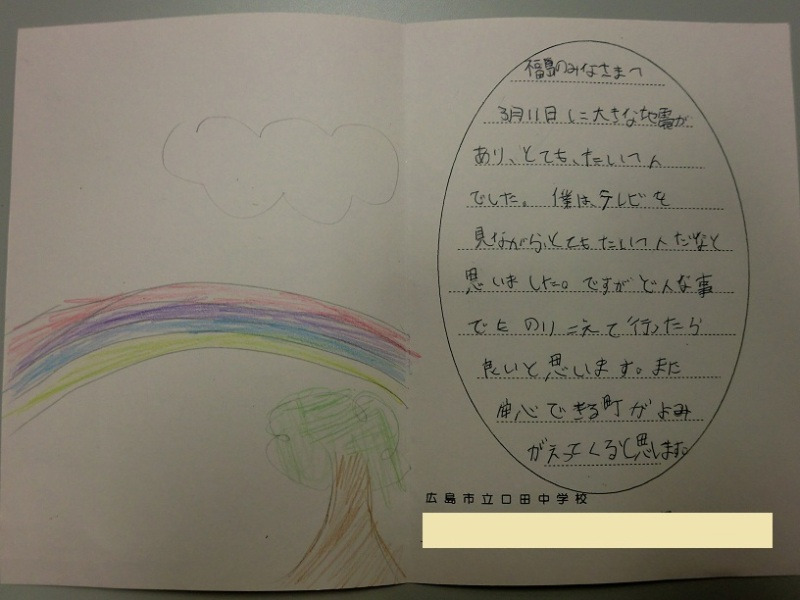 福島のみなさまへ
3月11日に大きな地震が
あり、とても、たいへん
でした。僕は、テレビを
見ながら、とてもたいへんだなと
思いました。ですがどんな事
でものりこえて行ったら
良いと思います。また
安心できる町がよみ
がえってくると思います。
広島市立口田中学校